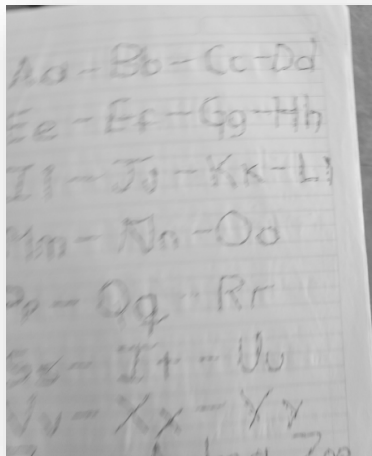 Aa - Bb - Cc - Dd
Ee - Ff - Gg - Hh
Ii - Jj - Kk - Ll
Mm - Nn - Oo
Pp - Qq - Rr
Ss - Tt - Uu
Vv - Xx - Yy